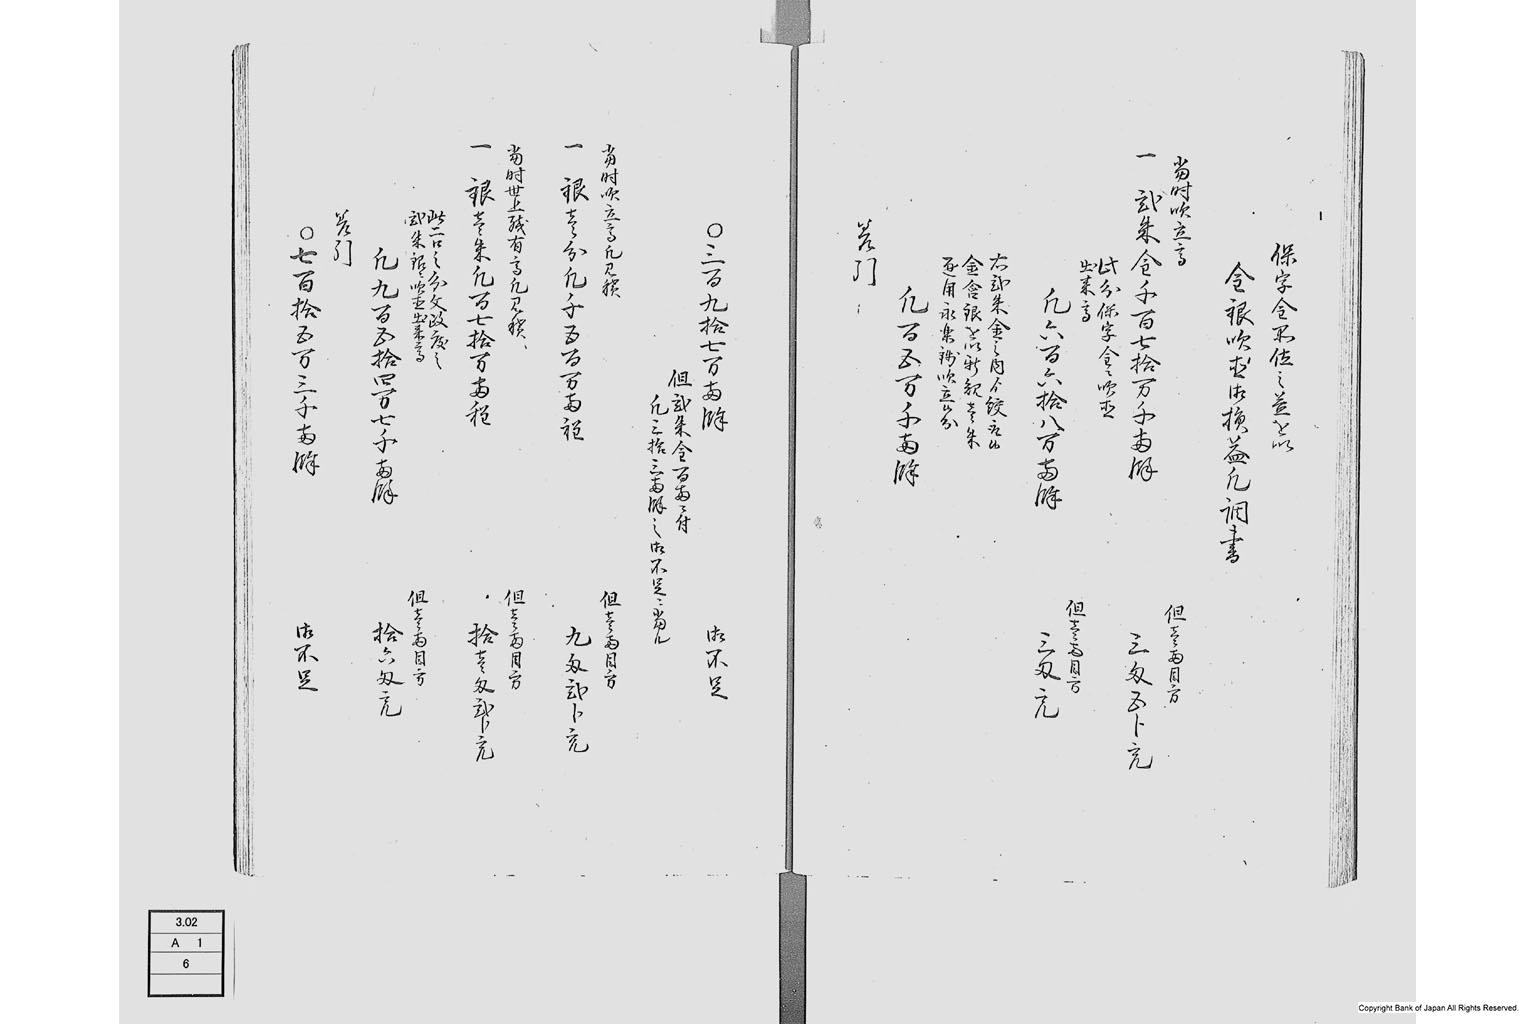 保字金品位之並を以
金銀吹直御損益凡調書
当時吹立高
一 弐朱金千百七拾万千両余
但壱両目方
三匁五卜充
此分保字金ニ吹直
出来高
凡六百六拾八万両余
但壱両目方
三匁充
右弐朱金之内
金含銀を以新規壱朱
吹立候分
凡百五万千両余
差引
〇三百九拾七万両余
御不足
但弐朱金百両ニ付
凡三拾三両余之御不足ニ当ル
当時吹立高凡見積
一 銀壱分凡千五百万両程
但壱両目方
九匁弐卜充
当時世上残有高凡見積
一 銀壱朱凡百七拾万両程
但壱両目方
拾壱匁弐卜充
此二口之分文政度之
弐朱銀ニ吹直出来高
凡九百五拾四万七千両余
但壱両目方
拾六匁充
差引
〇七百拾五万三千両余
御不足
3.02
A 1
6
Copyright Bank of Japan All Rights Reserved.